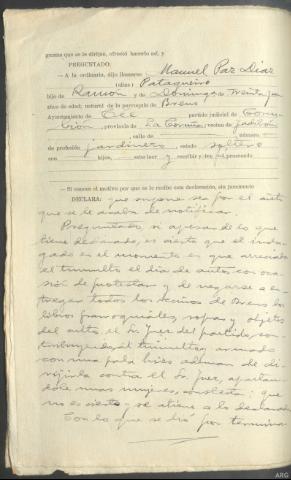 guntas que se le dirijan, ofreció hacerlo así, y
PREGUNTADO.
—A la ordinaria, dijo llamarse Manuel Paz Díaz
(alias) Pataqueiro
hijo de Ramón y de Dominga, de treinta
años de edad, natural de la parroquia de Brens
Ayuntamiento de Cee partido judicial de Corcu-
bión, provincia de La Coruña, vecino de
, calle de número
de profesión jardinero, estado soltero
con hijos, sabe leer y escribir y
— Si conoce el motivo por que se le recibe esta declaración, sin juramento
DECLARA: que supone sea por el auto
que se le acaba de notificar.
Preguntado si a pesar de lo que
tiene declarado, es cierto que el indi-
gado en el momento en que arreciaba
el tumulto el día de autos, con oca-
sión de protestar y de negarse a en-
tregar todos los vecinos de Brens los
libros parroquiales, ropas y objetos
del culto, el Sr. Juez del partido, con-
tribuyendo al tumulto, armado
con una pala hizo ademán de di-
rigirla contra el Sr. Juez, apartán-
dole unas mujeres, contesta: que
no es cierto y se atiene a lo declarado
Con lo que se dió por terminada
ARG